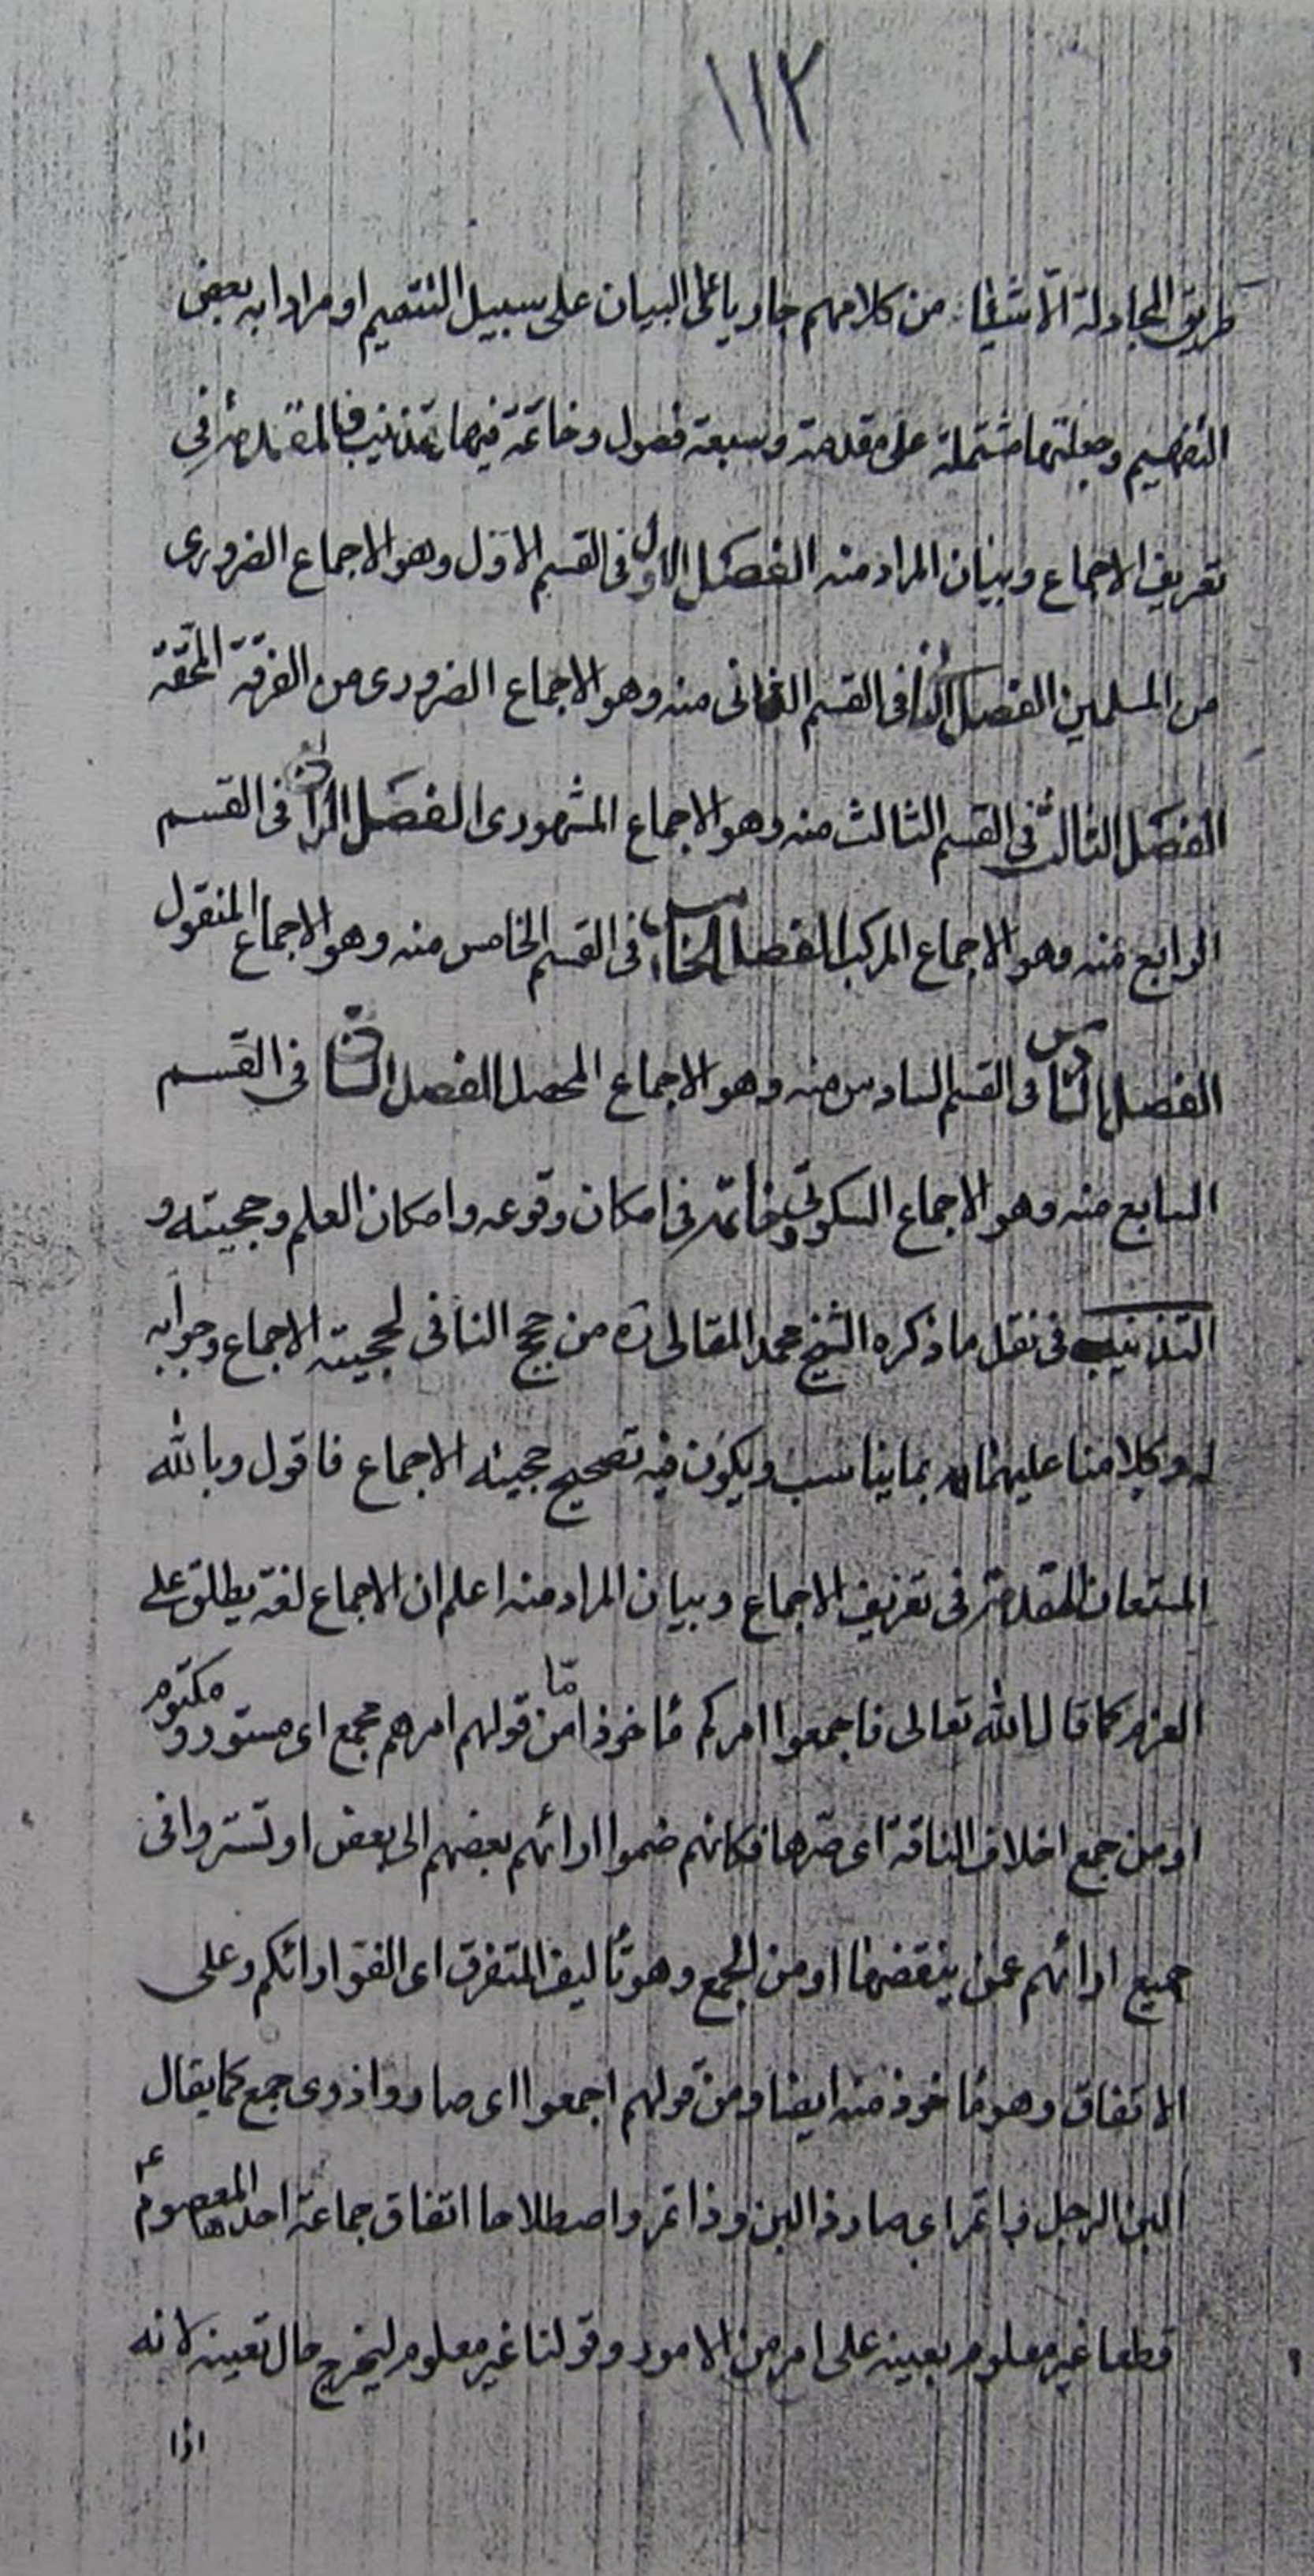 ١١٢
طريق المجادلة الا شيئا من كلامهم جاريا على البيان على سبيل التتميم او مرادا به بعض
التفهيم وجعلتها مشتملة على مقدمة وسبعة فصول وخاتمة فيها تذنيب فالمقدمة في
تعريف الاجماع وبيان المراد منه الفصل الاول في القسم الاول وهو الاجماع الضرورى
من المسلمين الفصل الثاني فى القسم الثانى منه وهو الاجماع الضرورى من الفرقة المحقة
الفصل الثالث في القسم الثالث منه وهو الاجماع المشهورى الفصل الرابع فى القسم
الرابع منه وهو الاجماع المركب الفصل الخامس فى القسم الخامس منه وهو الاجماع المنقول
الفصل السادس فى القسم السادس منه وهو الاجماع المحصل الفصل السابع فى القسم
السابع منه وهو الاجماع السكوتى وخاتمة فى امكان وقوعه وامكان العلم وحجيته و
التذنيب فى نقل ما ذكره الشيخ محمد المقالى ره من حجج النافى لحجية الاجماع وجوابه
له وكلامنا عليهما بما يناسب ويكون فيه تصحيح حجية الاجماع فاقول وبالله
المستعان المقدمة فى تعريف الاجماع وبيان المراد منه اعلم ان الاجماع لغة يطلق على
العزم كما قال الله تعالى فاجمعوا امركم مأخوذا اما من قولهم امرهم مجمع اى مستور ومكتوم
او من جمع اخلاف الناقة اى صرها فكانهم ضموا ارائهم بعضهم الى بعض او تستروا فى
جميع ارائهم عمن ينقضها او من الجمع وهو تأليف المتفرق اى الفوا ارائكم وعلى
الاتفاق وهو مأخوذ منه ايضا ومن قولهم اجمعوا اى صاروا ذوى جمع كما يقال
البن الرجل واتمر اى صار ذا لبن وذا تمر واصطلاحا اتفاق جماعة احدها المعصوم ع
قطعا غير معلوم بعينه على امر من الامور وقولنا غير معلوم ليخرج حال تعينه لانه
اذا